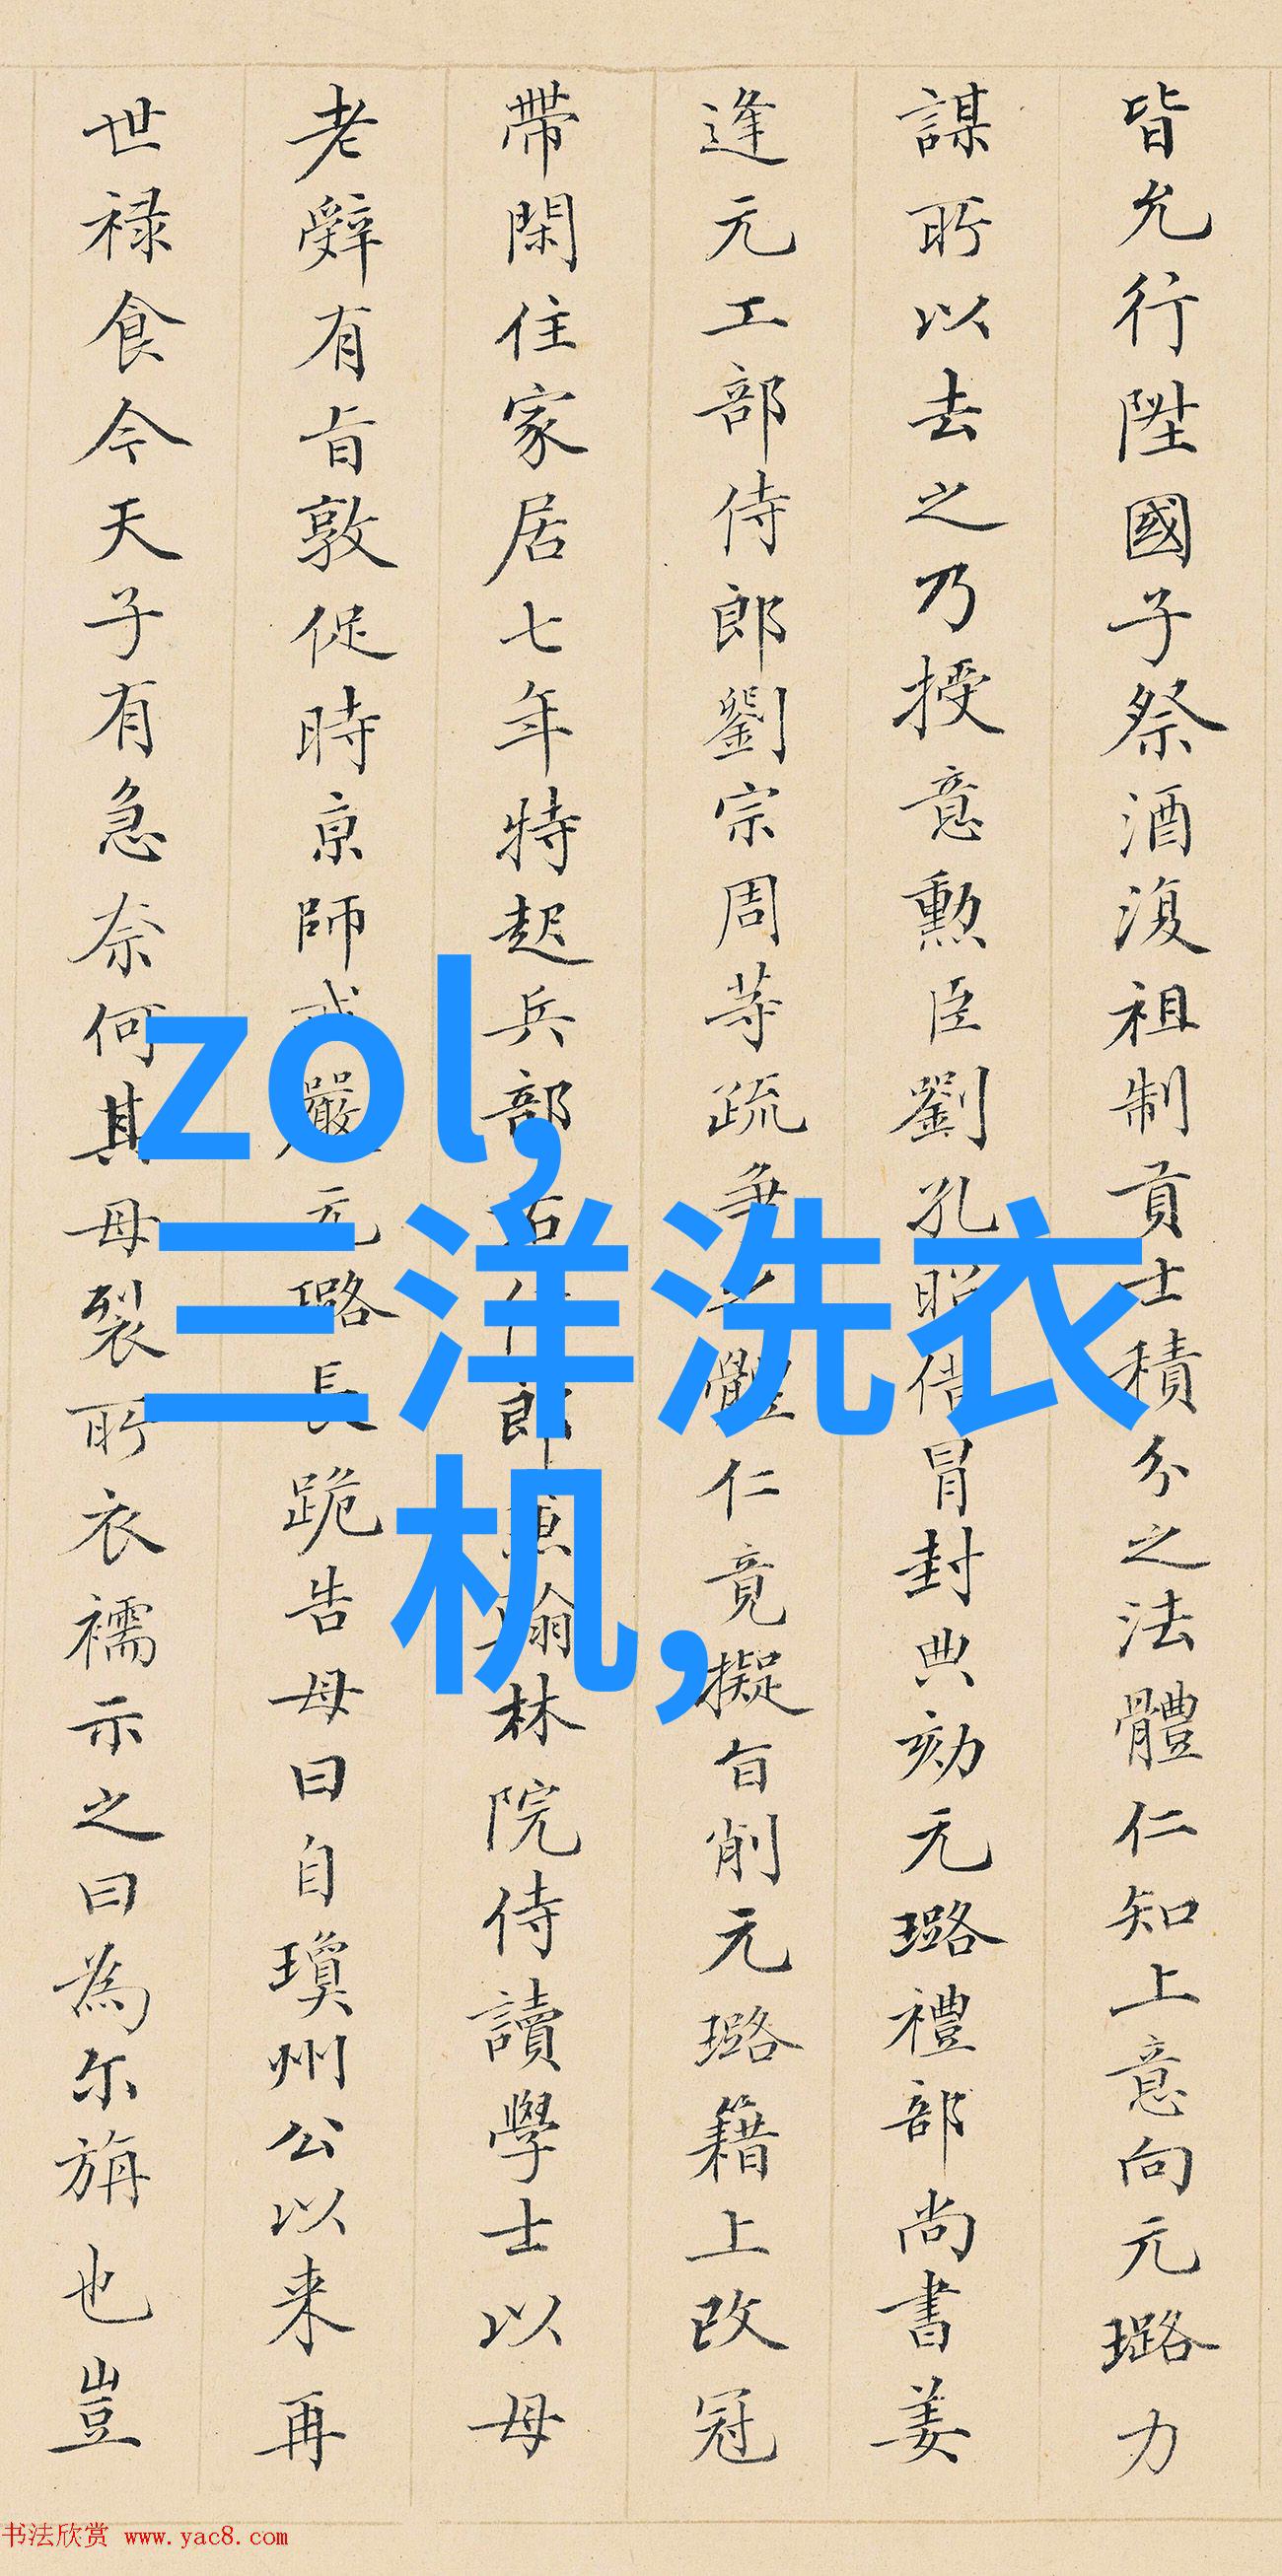 皆允行陞國子祭酒復祖制貢士積分之法體仁知上意向元璐力
謀所以去之乃授意勲臣劉孔昭借冒封典劾元璐禮部尚書姜
逢元工部侍郎劉宗周等疏爭體仁竟擬旨削元璐籍上改冠
帶閑住家居七年特起兵部右侍郎兼翰林院侍讀學士以母
老辭有旨敦促時京師戒嚴元璐長跪告母曰自瓊州公以来再
世禄食今天子有急奈何其母裂所衣襦示之曰為尔旃也豈
zol,
三洋洗衣
机,
书法欣赏 www.yac8.com